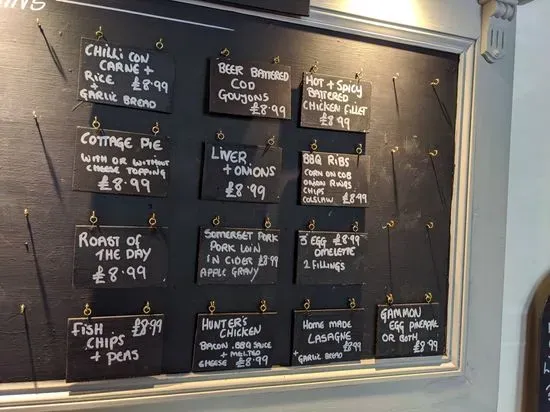 CHILLI CON
CARNE +
RICE
+ £8.99
GARLIC BREAD
BEER BATTERED
COD
GOUJONS
£8.99
HOT + SPICY
BATTERED
CHICKEN FILLET
£8.99
COTTAGE PIE
WITH OR WITHOUT
CHEESE TOPPING
£8.99
LIVER
+ ONIONS
£8.99
BBQ RIBS
CORN ON COB
ONION RINGS
CHIPS
COLSLAW £8.99
ROAST OF
THE DAY
£8.99
SOMERSET PORK
PORK LOIN
IN CIDER £8.99
APPLE GRAVY
3 EGG £8.99
OMELETTE
2 FILLINGS
FISH £8.99
CHIPS
+ PEAS
HUNTER'S
CHICKEN
BACON, BBQ SAUCE
+ MELTED
CHEESE £8.99
HOME MADE
LASAGNE
£8.99
+ GARLIC BREAD
GAMMON
EGG PINEAPPLE
OR BOTH £8.99